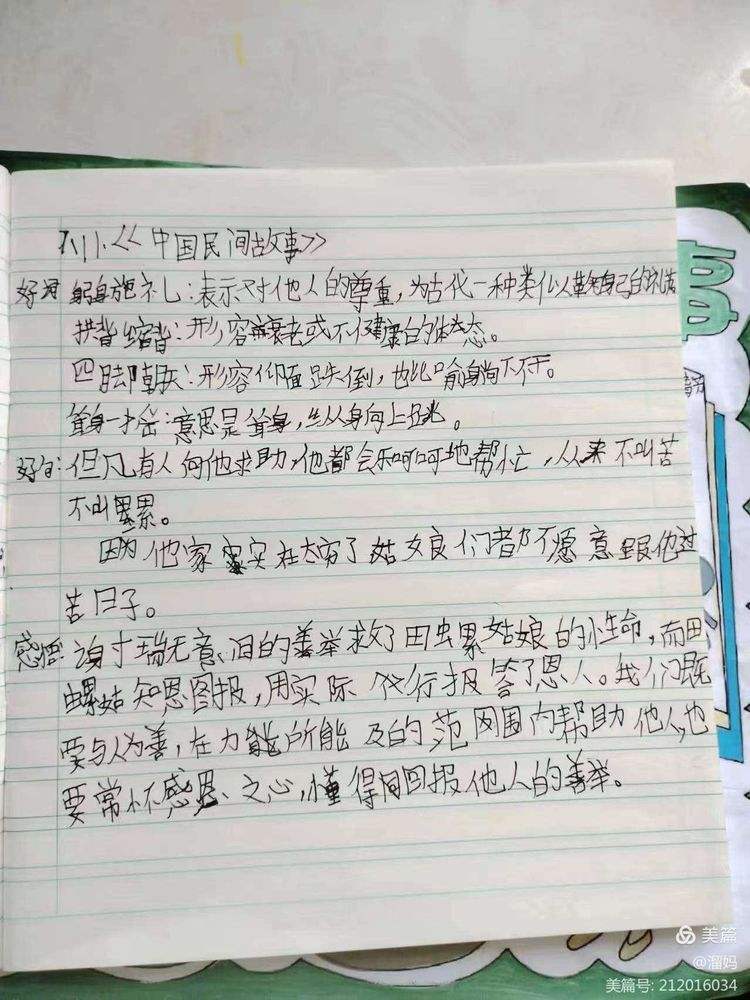 7.11.《中国民间故事》
好词 躬身施礼:表示对他人的尊重,为古代一种类似鞠躬的礼节
拱背缩背:形容衰老或不健康的体态。
四脚朝天:形容仰面跌倒,也比喻身向下不干。
耸身一摇:意思是耸身,纵身向上跳。
好句:但凡有人向他求助,他都会乐呵呵地帮忙,从来不叫苦
不叫累。
因为他家实在太穷了姑娘们都不愿意跟他过
苦日子。
感悟:谢瑞无意间的善举救了田螺姑娘的性命,而田
螺姑知恩图报,用实际行报答了恩人。我们既
要与人为善,在力能所能及的范围内帮助他人,也
要常怀感恩之心,懂得回报他人的善举。
事
美篇
@溜妈
美篇号: 212016034